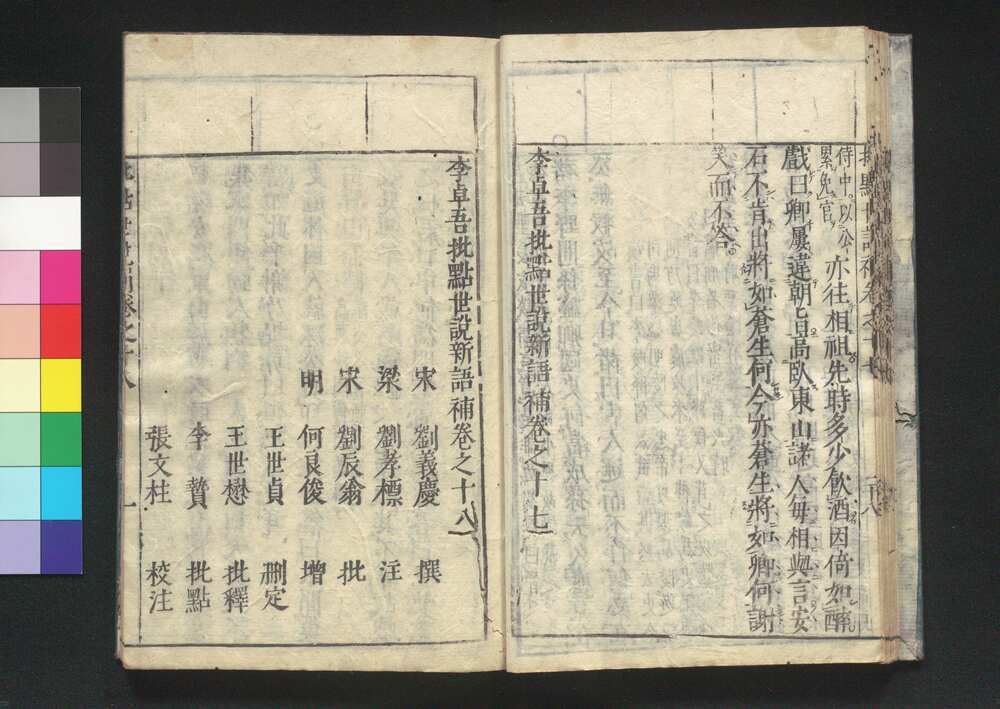 侍中以公
累免官
亦往相祖先時多少飲酒因倚如醉
戲曰卿屢違朝旨高臥東山諸人每相與言安
石不肯出將如蒼生何今亦蒼生將如卿何謝
笑而不答
李卓吾批點世說新語補卷之十七
李卓吾批點世說新語補卷之十八
宋 劉義慶 撰
梁 劉孝標 注
宋 劉辰翁 批
明 何良俊 增
王世貞 刪定
王世懋 批釋
李贄 批點
張文柱 校注
一